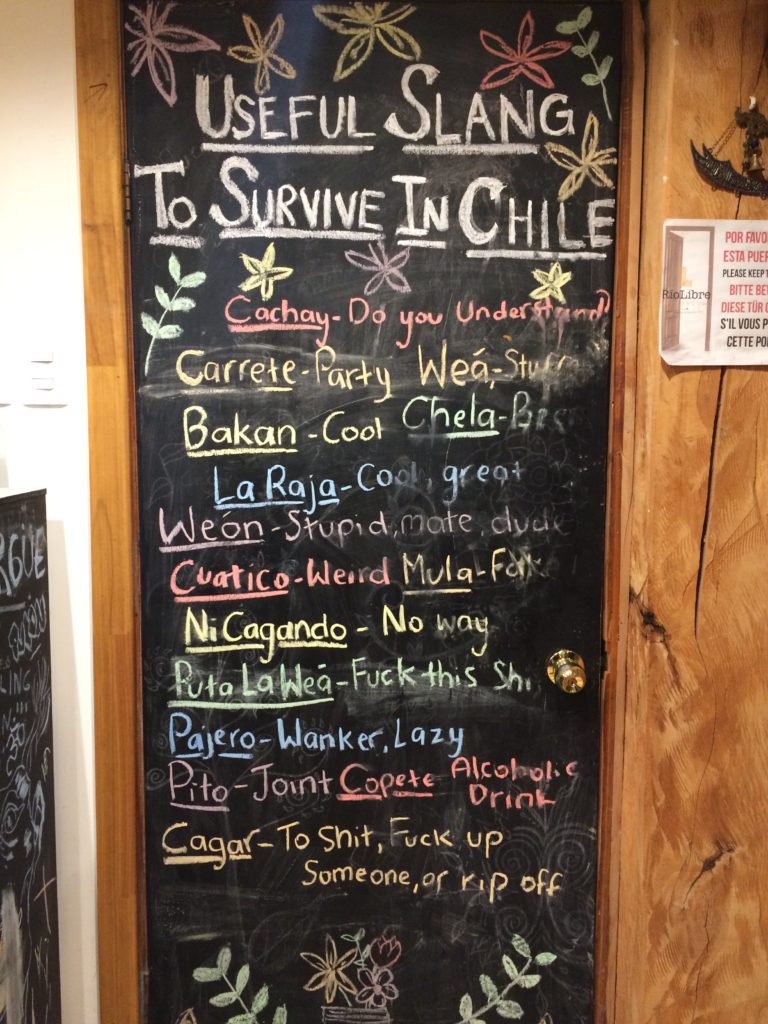 USEFUL SLANG
TO SURVIVE IN CHILE
Cachay - Do you Understand?
Carrete - Party Weá - Stuff
Bakan - Cool Chela - Beer
La Raja - Cool, great
Weón - Stupid, mate, dude
Cuatico - Weird Mula - Fake
Ni Cagando - No way
Puta La Weá - Fuck this Shi
Pajero - Wanker, Lazy
Pito - Joint Copete Alcoholic
Drink
Cagar - To Shit, Fuck up
Someone, or rip off
POR FAVO
ESTA PUER
PLEASE KEEP T
BITTE BE
DIESE TÜR
S'IL VOUS P
CETTE PO
RioLibre
RGÜE